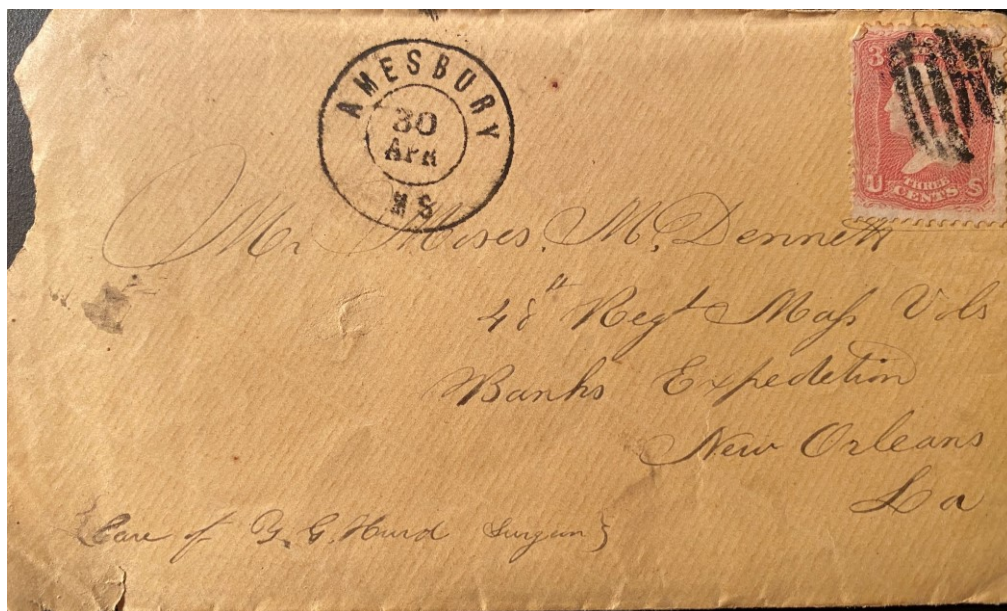 AMESBURY
30
APR
MS
3
U S
THREE
CENTS
Mr. Moses. M. Dennett
48th Regt Mass Vols
Banks Expedetion
New Orleans
La
{Care of Y. G. Hurd Surgeon}